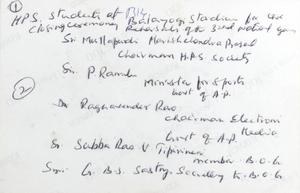 ①
H.P.S. Students at
Closing Ceremony Rehearsals of the 32nd national games
Sri Mullapudi Harishchandra Prasad
Chairman H.P.S. Society
Sri. P. Ramulu
Minister for Sports
Govt of A.P.
②
Dr Raghavender Rao
Chairman Electronic Media
Govt of A.P.
Sri Subba Rao V Tipirineni
member B.O.G.
Smt. G. B. S. Sastry, Secretary B.O.G.